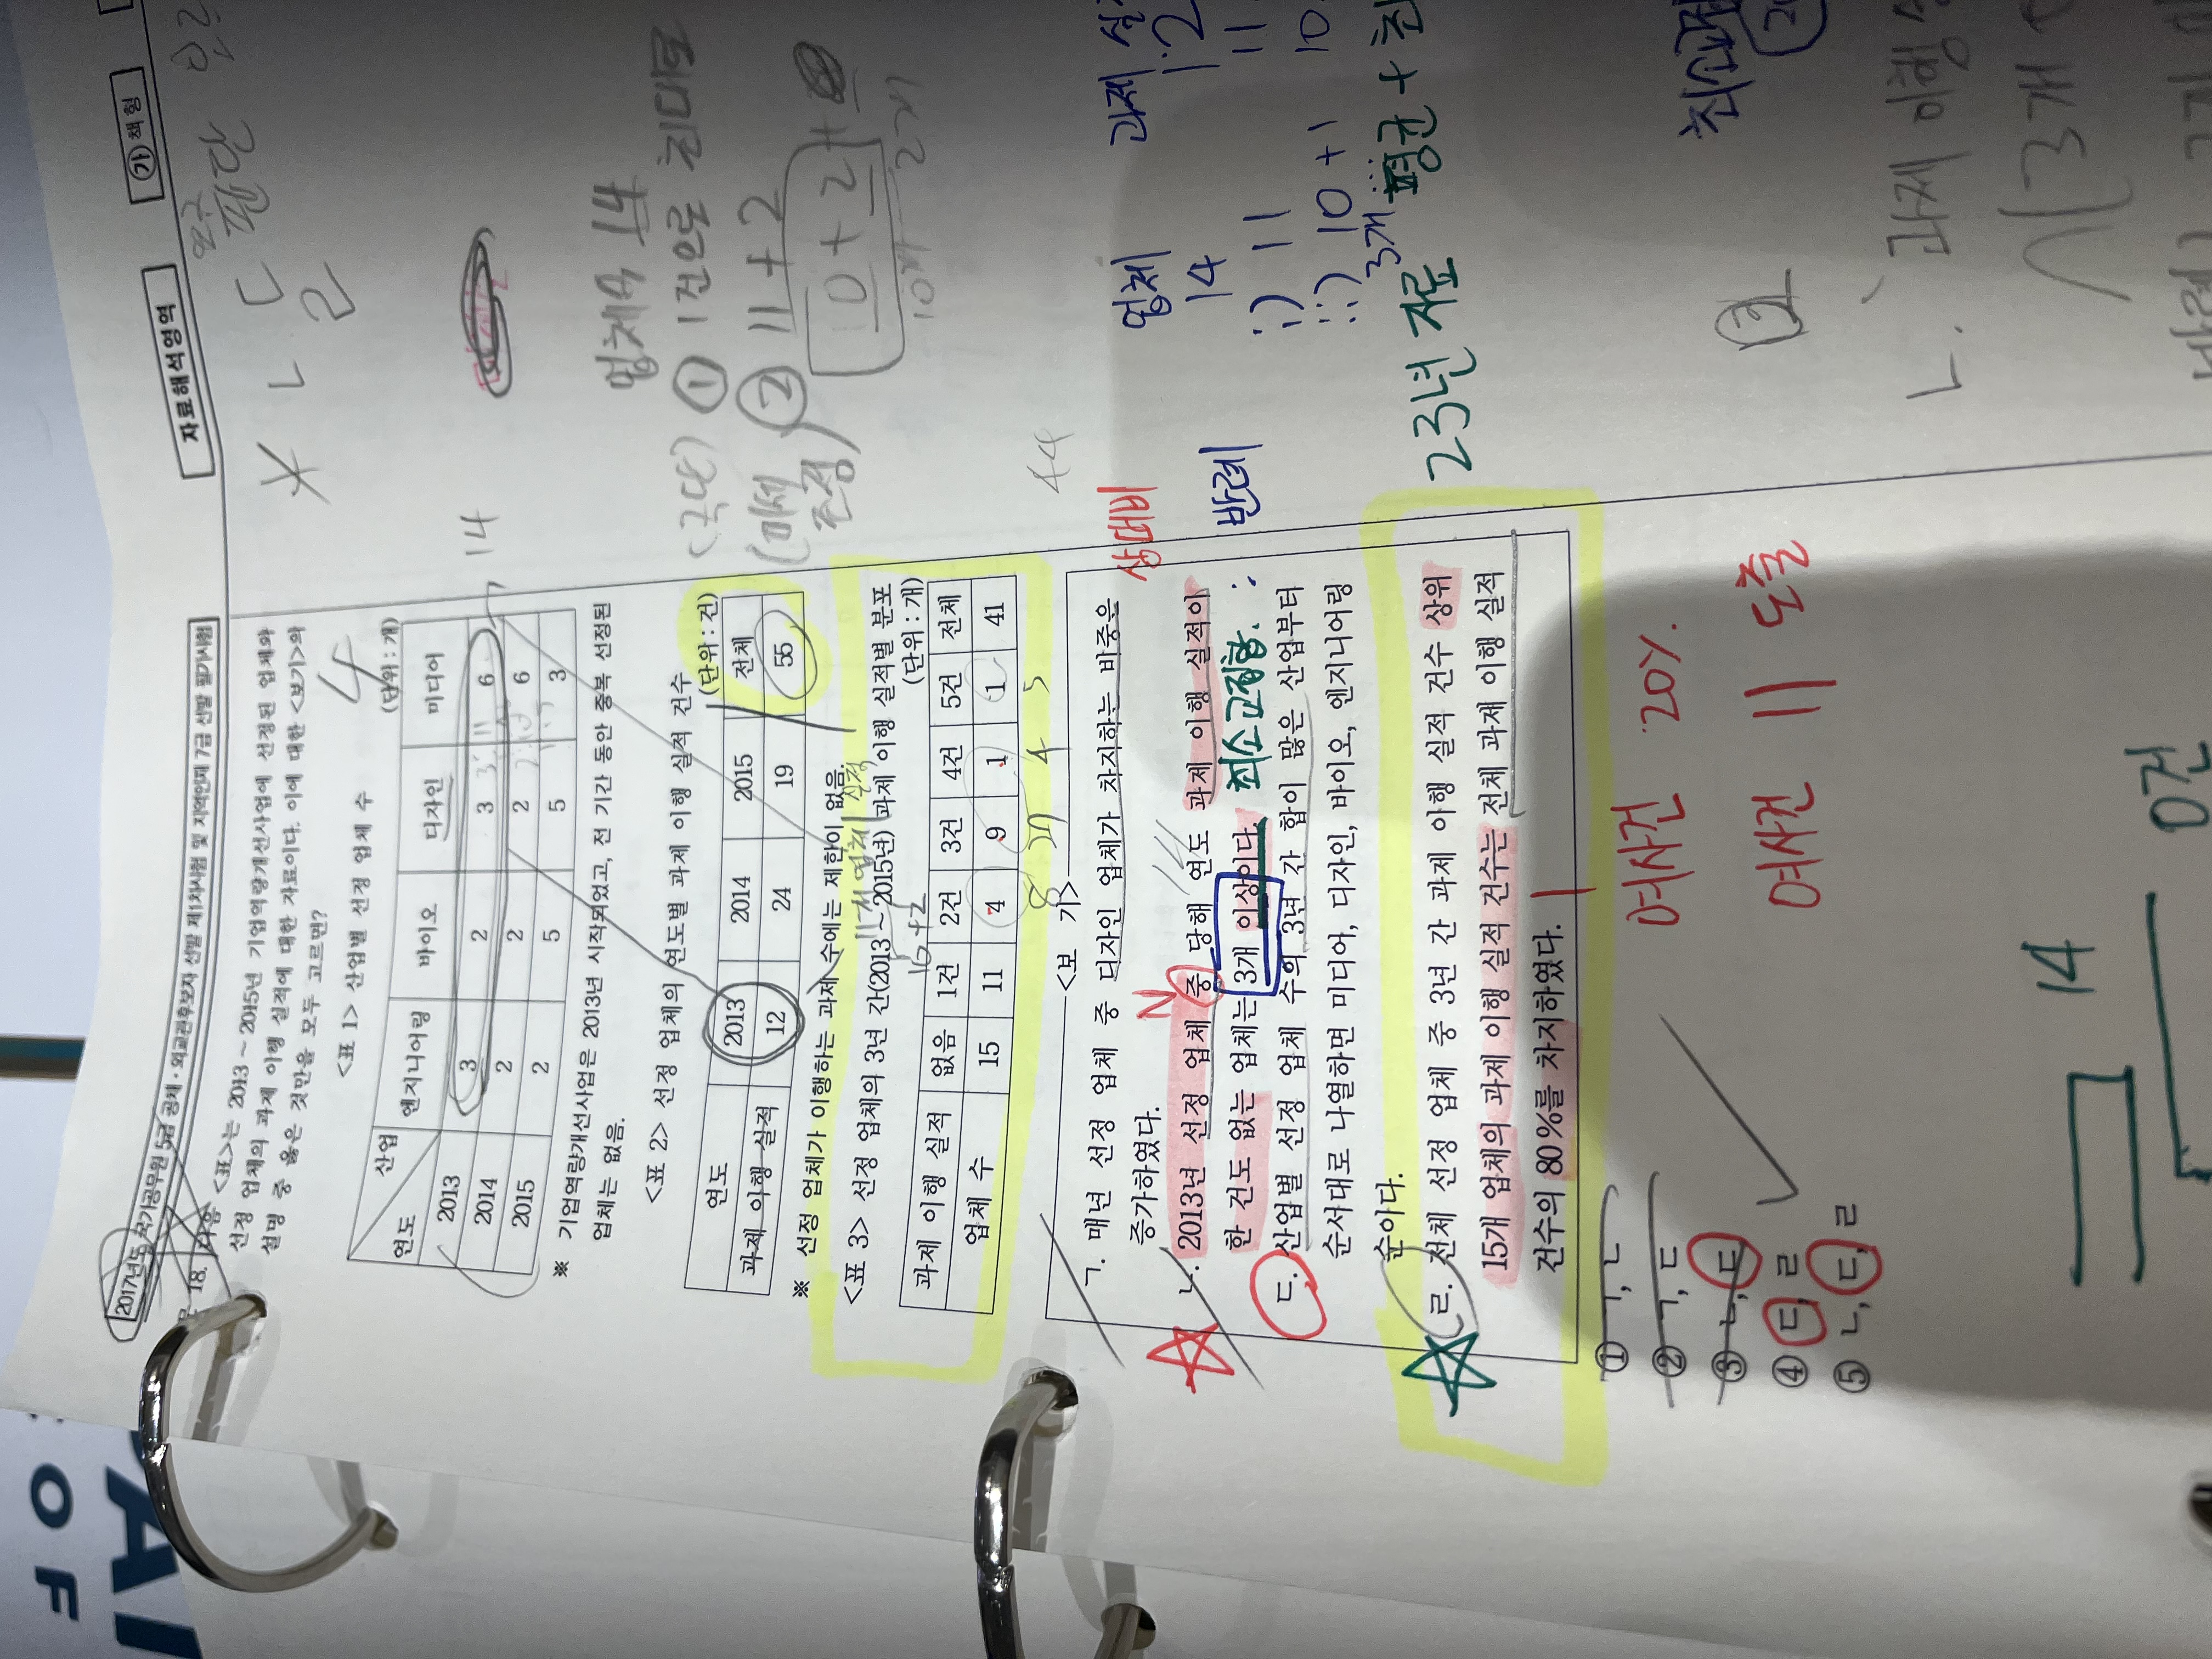 자료해석영역
㉮ 책형
2017년도 국가공무원 5급 공채·외교관후보자 선발 제1차시험 및 지역인재 7급 선발 필기시험
18. 다음 <표>는 2013~2015년 기업역량개선사업에 선정된 업체와
선정 업체의 과제 이행 실적에 대한 자료이다. 이에 대한 <보기>의
설명 중 옳은 것만을 모두 고르면?
4
<표 1> 산업별 선정 업체 수
(단위 : 개)
산업
연도 엔지니어링 바이오 디자인 미디어
2013 3 2 3 6
14
2014 2 2 2 6
2015 2 5 5 3
※ 기업역량개선사업은 2013년 시작되었고, 전 기간 동안 중복 선정된
업체는 없음.
<표 2> 선정 업체의 연도별 과제 이행 실적 건수
(단위 : 건)
연도 2013 2014 2015 전체
과제 이행 실적 12 24 19 55
※ 선정 업체가 이행하는 과제 수에는 제한이 없음.
<표 3> 선정 업체의 3년 간(2013~2015년) 과제 이행 실적별 분포
(단위 : 개)
과제 이행 실적 없음 1건 2건 3건 4건 5건 전체
업체 수 15 11 4 9 1 1 41
8 27 4 5
44
<보 기>
ㄱ. 매년 선정 업체 중 디자인 업체가 차지하는 비중은
증가하였다.
상대비
ㄴ. 2013년 선정 업체 중 당해 연도 과제 이행 실적이
한 건도 없는 업체는 3개 이상이다.
최소교집합.
반례
ㄷ. 산업별 선정 업체 수의 3년 간 합이 많은 산업부터
순서대로 나열하면 미디어, 디자인, 바이오, 엔지니어링
순이다.
ㄹ. 전체 선정 업체 중 3년 간 과제 이행 실적 건수 상위
15개 업체의 과제 이행 실적 건수는 전체 과제 이행 실적
건수의 80%를 차지하였다.
① ㄱ, ㄴ
② ㄱ, ㄷ
③ ㄴ, ㄷ
④ ㄷ, ㄹ
⑤ ㄴ, ㄷ, ㄹ
여사건 20%.
여사건 11 도출
14
0건
ㄴ ㄷ
ㄹ 판단
업체수 14
(극단) ① 1건으로 최대로
② 11+2
조정)
10+2+
10개 2개
업체
14
i) 11
ii) 10+1
3개
23년 자료 평균 +
②
ㄴ. 과제 이행
3개